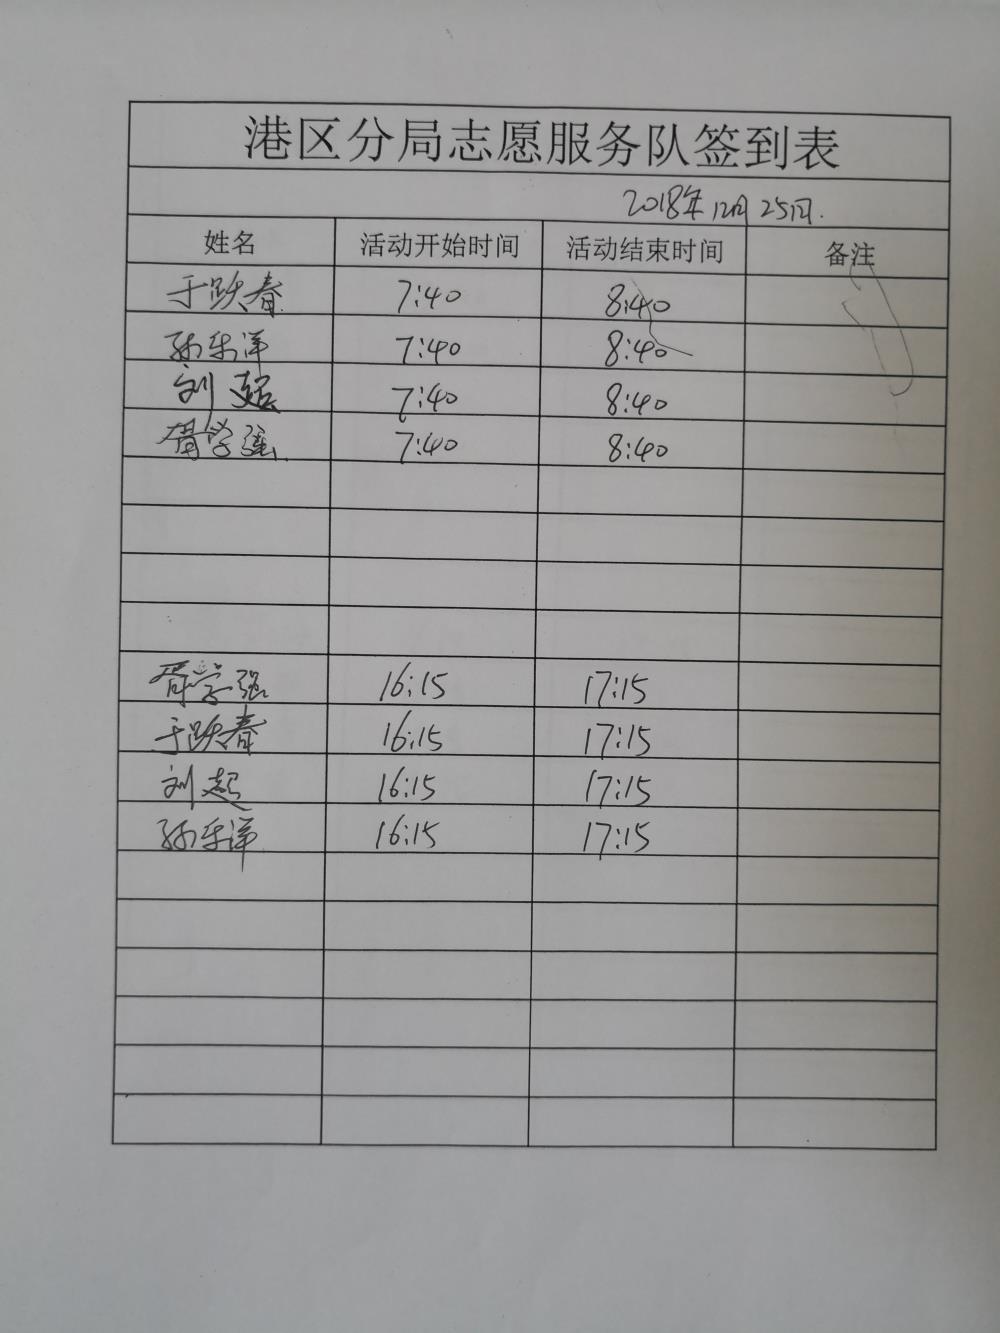 港区分局志愿服务队签到表
2018年12月25日.
姓名 活动开始时间 活动结束时间 备注
于跃春 7:40 8:40
孙乐洋 7:40 8:40
刘超 7:40 8:40
胥学强 7:40 8:40
胥学强 16:15 17:15
于跃春 16:15 17:15
刘超 16:15 17:15
孙乐洋 16:15 17:15